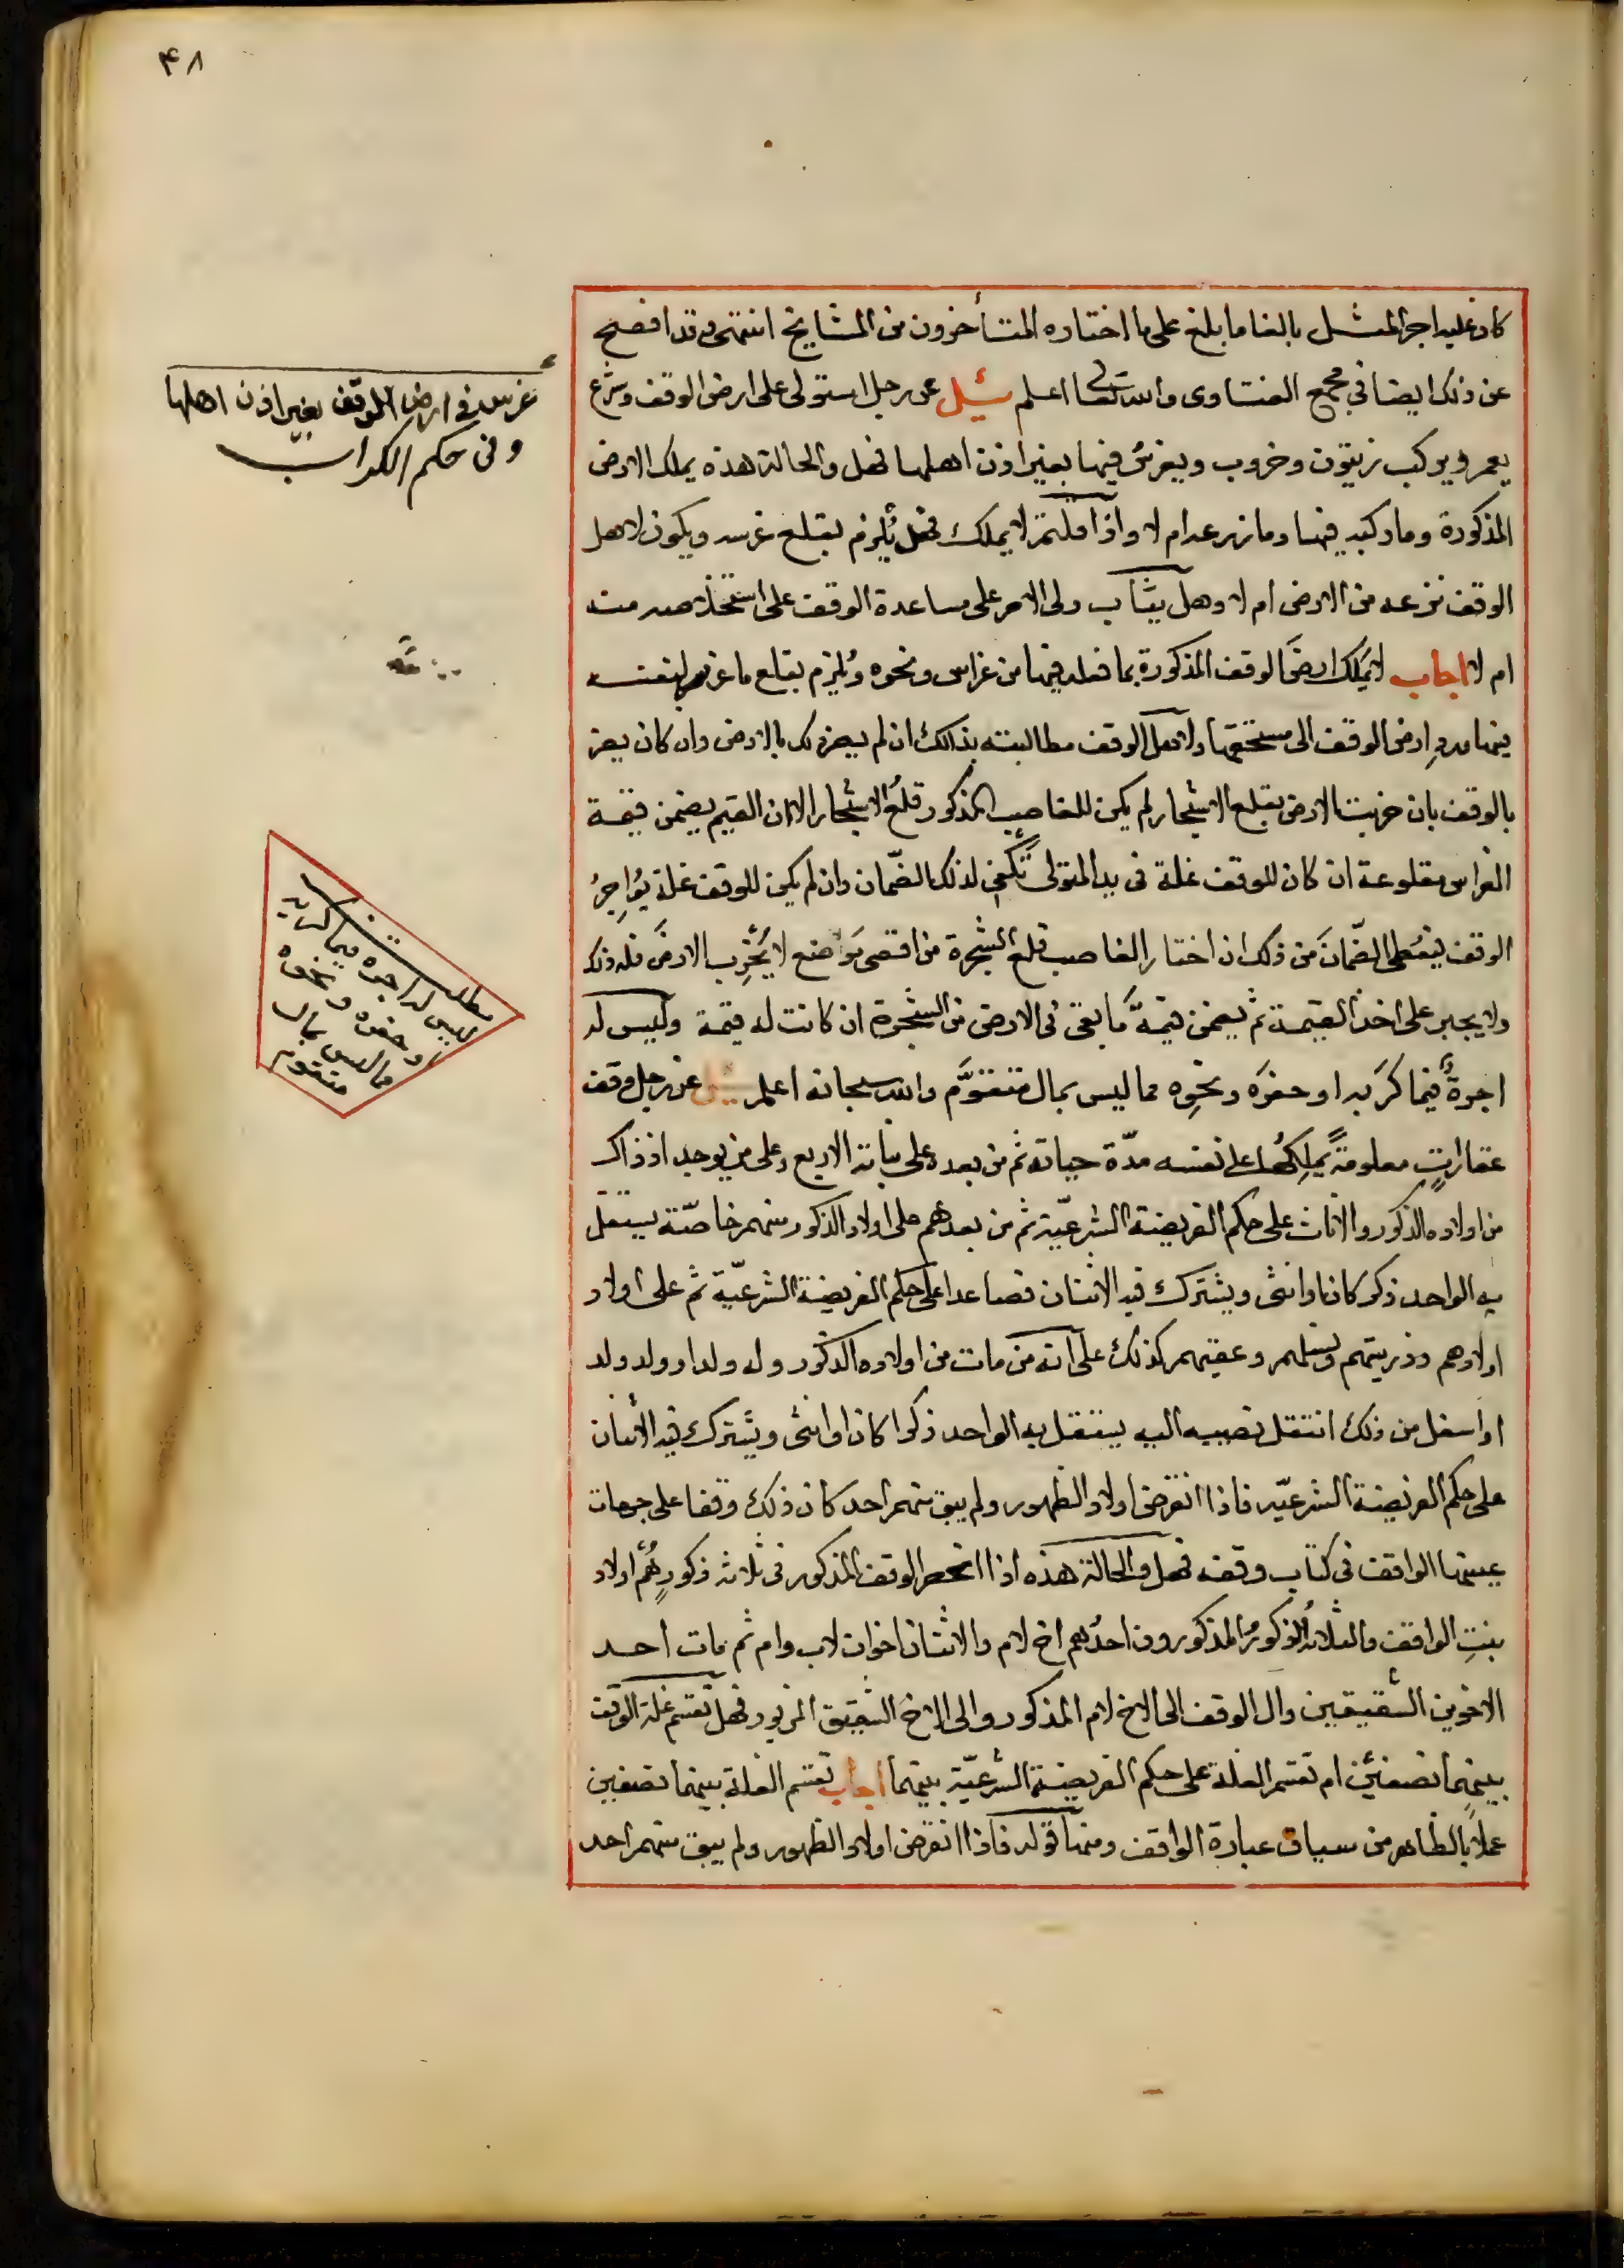 ۴۸
كان عليه اجر المثل بالغا ما بلغ على ما اختاره المتأخرون من المشايخ انتهى وقد افصح
عن ذلك ايضا في مجمع الفتاوى والله تعالى اعلم سئيل عن رجل استولى على ارض الوقف وشرع
يعمر ويركب زيتون وخروب ويغرس فيها بغير اذن اهلها فهل والحالة هذه يملك الارض
المذكورة وما ركبه فيها وما زرعه ام لا واذا قلتم لا يملك فهل يُلزم بقلع غرسه ويكون لاهل
الوقف نزعه من الارض ام لا وهل يثاب ولى الامر على مساعدة الوقف على استخلاصه منه
ام لا اجاب لا يَملك ارضَ الوقف المذكورة بما فعله فيها من غراس ونحوه ويُلزم بقلع ما غرسه لنفسه
فيها وردِ ارض الوقف الى مستحقها ولاهل الوقف مطالبته بذلك ان لم يضر ذلك بالارض وان كان يضر
بالوقف بان خربت الارض بقلع الاشجار لم يكن للغاصب المذكور قلعُ الاشجار الا ان القيم يضمن قيمة
الغراس مقلوعة ان كان للوقف غلة في يد المتولى تكفى لذلك الضّمان وان لم يكن للوقف غلة يُؤاجِرُ
الوقف فيُعطى الضّمانَ من ذلك ان اختار الغاصب قلع الشجرة من اقصى مَواضع لا يُخَرِّب الارضَ فله ذلك
ولا يجبر على اخذ القيمة ثم يضمن قيمةَ ما بقى فى الارض من الشجرة ان كانت له قيمة وليس له
اجرةٌ فيما كرَبه او حفرَه ونحوِه مما ليس بمال متقوَّم والله سبحانه اعلم سئيل عن رجل وقف
عقاراتٍ معلومةً يَملِكُها على نفسه مدّة حياته ثم من بعده على بناته الاربع وعلى من يوجد اذ ذاك
من اولاده الذكور والاناث على حكم الفريضة الشرعيّة ثم من بعدهم على اولاد الذكور منهم خاصّة يستقل
به الواحد ذكرا كان او انثى ويشترك فيه الاثنان فصاعدا على حكم الفريضة الشرعيّة ثم على اولاد
اولادهم وذريتهم ونسلهم وعقبهم كذلك على انه من مات من اولاده الذكور وله ولد او ولد ولد
او اسفل من ذلك انتقل نصيبه اليه يستقل به الواحد ذكرا كان او انثى ويشترك فيه الاثنان
على حكم الفريضة الشرعيّه فاذا انقرض اولاد الظهور ولم يبق منهم احد كان ذلك وقفا على جهات
عينها الواقف فى كتاب وقفه فهل والحالة هذه اذا انحصر الوقف المذكور فى ثلاثه ذكورٍ هُم اولاد
بنتِ الواقف والثلاثُه الذكورُ المذكورون احدُهم اخ لام والاثنان اخوان لاب وام ثم مات احد
الاخوين الشقيقين وال الوقف الى الاخ لام المذكور والى الاخ الشقيق المزبور فهل تقسم غلة الوقف
بينهما نصفين ام تقسم الغلة على حكم الفريضة الشرعيّة بينهما اجاب تقسم الغلة بينهما نصفين
عملا بالظاهر من سياق عبارة الواقف ومنها قوله فاذا انقرض اولاد الظهور ولم يبق منهم احد
غرس فى ارض الوقف بغير اذن اهلها
وفى حكم الكراب
مطلب
ليس له اجره فيما كربه
او حفره ونحوه
مما ليس بمال
متقوم